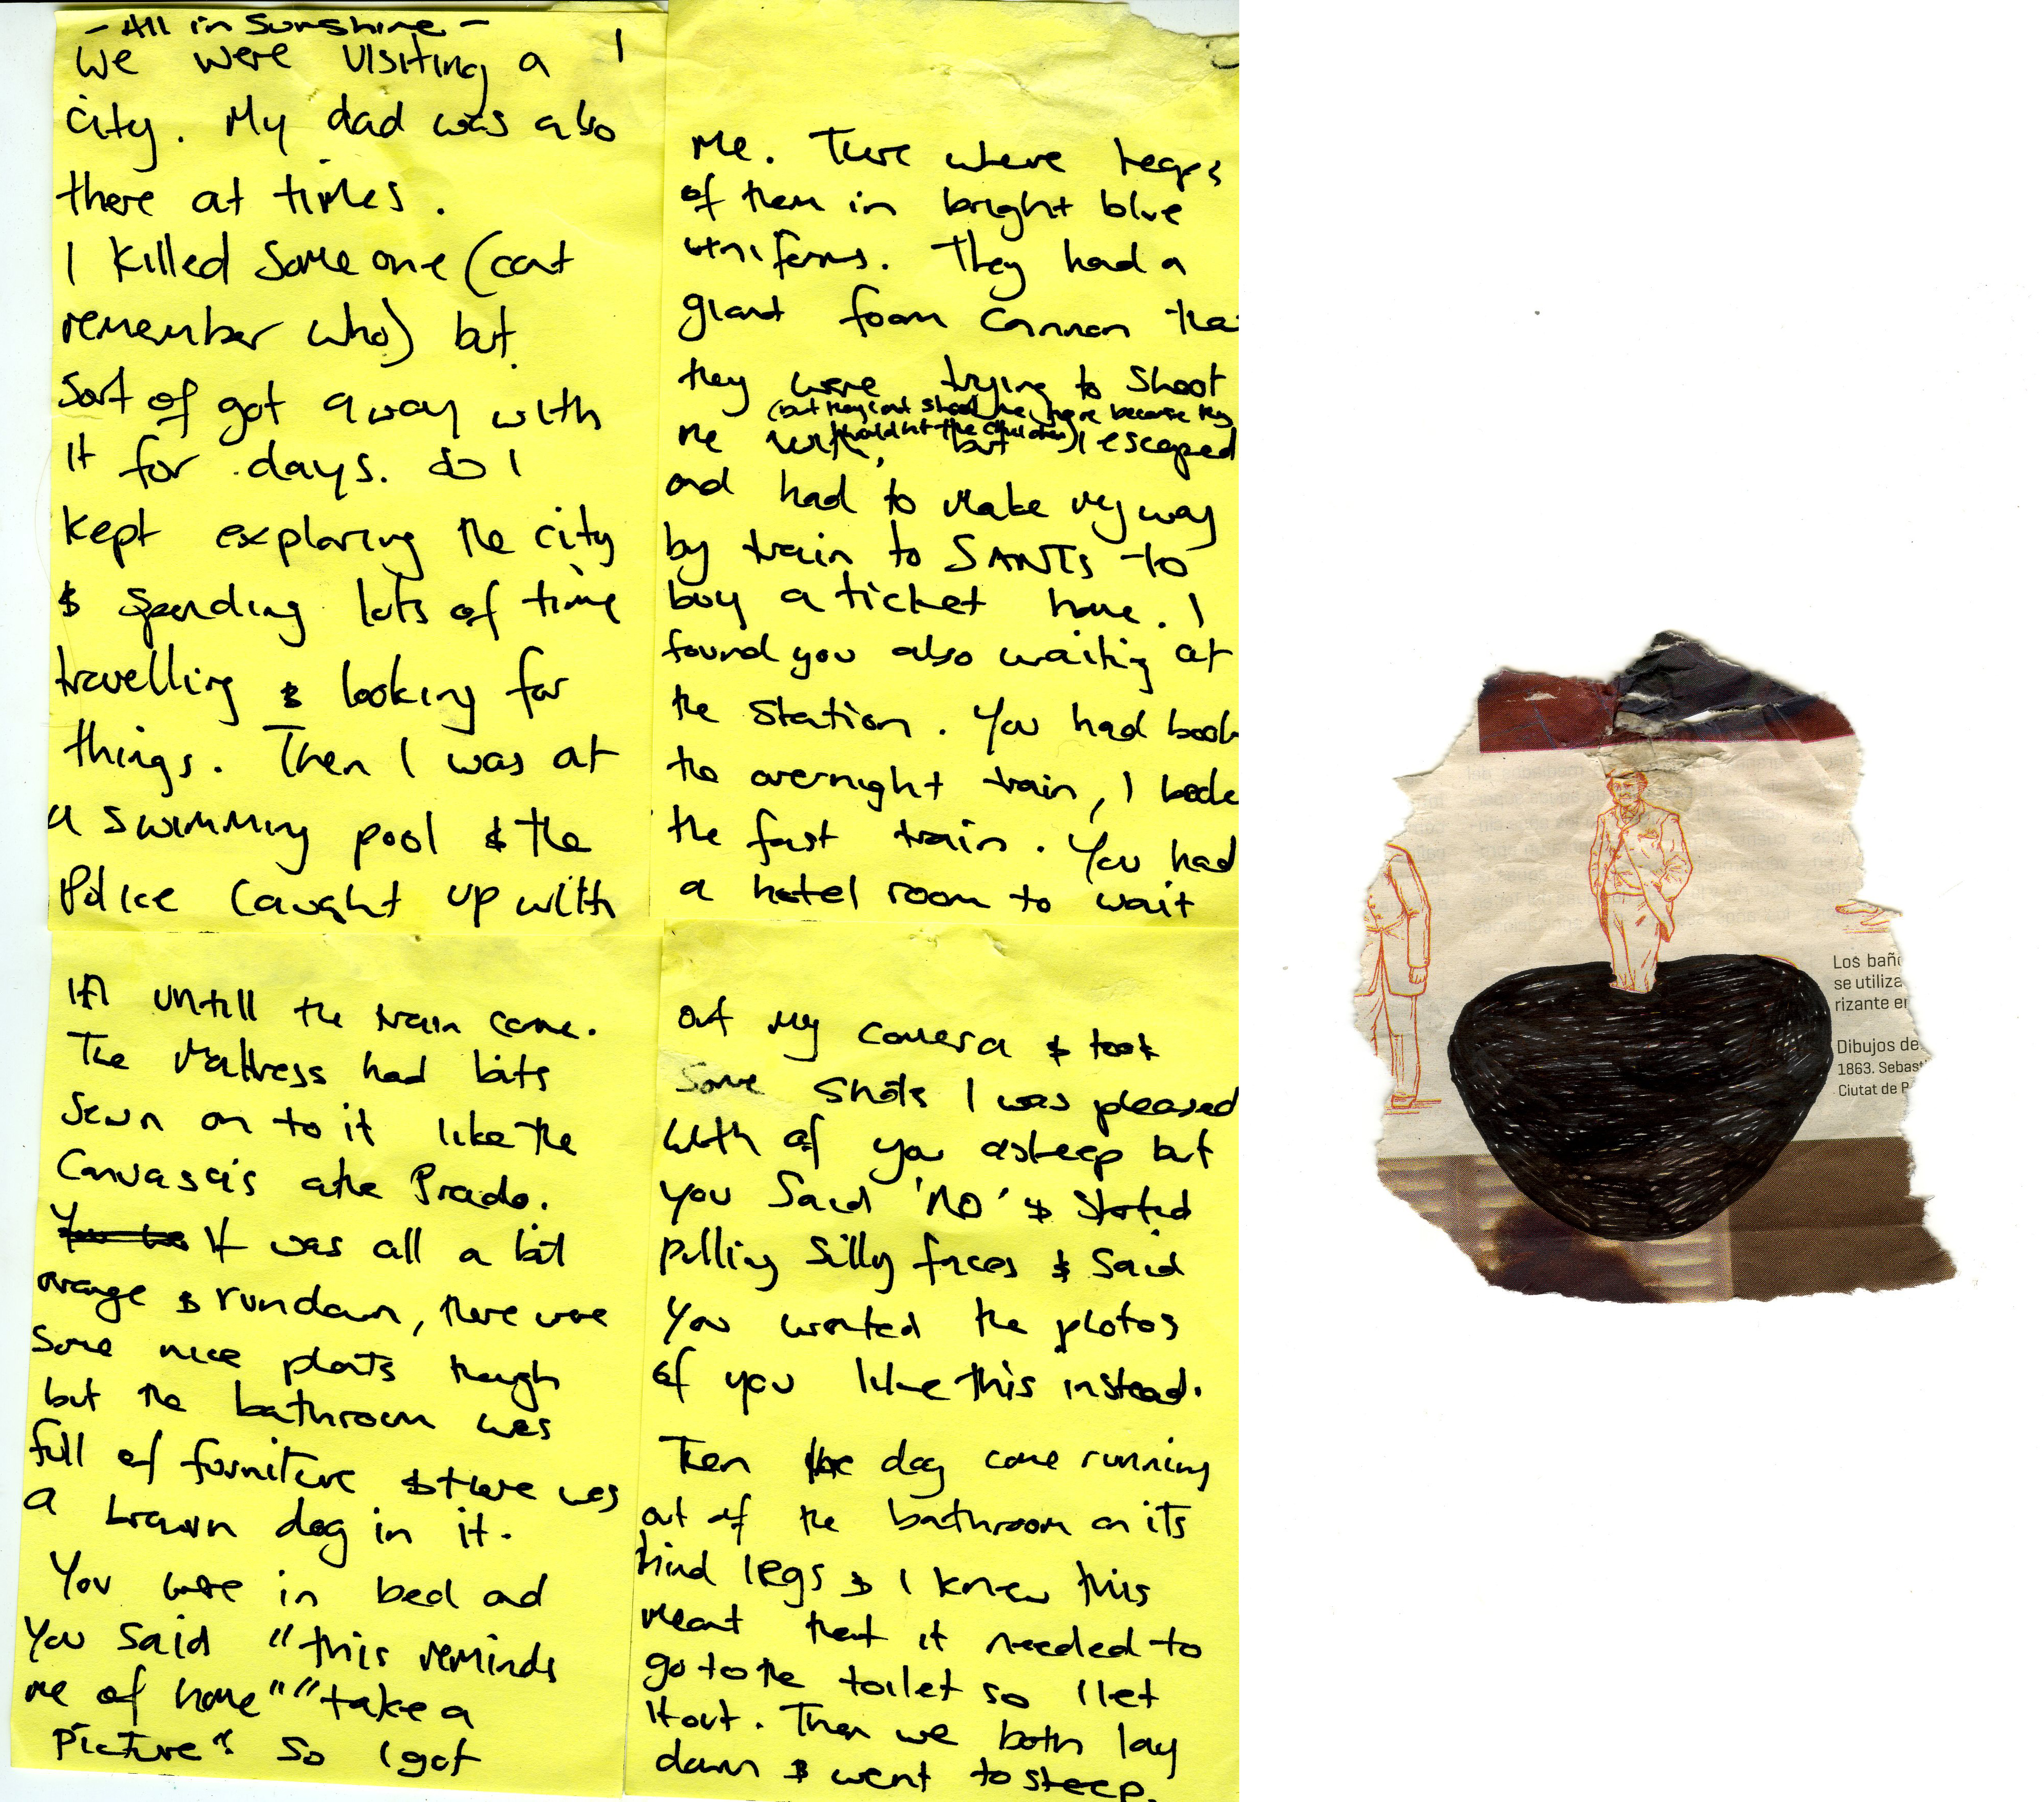 - All in Sunshine -
1
We were visiting a
city. My dad was also
there at times.
I killed someone (cant
remember who) but
sort of got away with
it for days. So I
kept exploring the city
& spending lots of time
travelling & looking for
things. Then I was at
a swimming pool & the
Police caught up with
Me. There where heaps
of them in bright blue
uniforms. They had a
giant foam cannon tha
they were trying to shoot
(but they cant shoot me here because they
would hit the children)
me with, but I escaped
and had to make my way
by train to SANTS to
buy a ticket home. I
found you also waiting at
the station. You had book
the overnight train, I booke
the fast train. You had
a hotel room to wait
in untill the train came.
The mattress had bits
sewn on to it like the
Canvases in the Prado.
It was all a bit
orange & rundown, there were
some nice plants though
but the bathroom was
full of furniture & there was
a brown dog in it.
You were in bed and
you said "this reminds
me of home" "take a
picture" so I got
out my camera & took
some shots I was pleased
with of you asleep but
you said 'NO' & started
pulling silly faces & said
you wanted the photos
of you like this instead.
Then the dog came running
out of the bathroom on its
hind legs & I knew this
meant that it needed to
go to the toilet so I let
it out. Then we both lay
down & went to sleep.
Los bañ
se utiliza
rizante en
Dibujos de
1863. Sebast
Ciutat de P